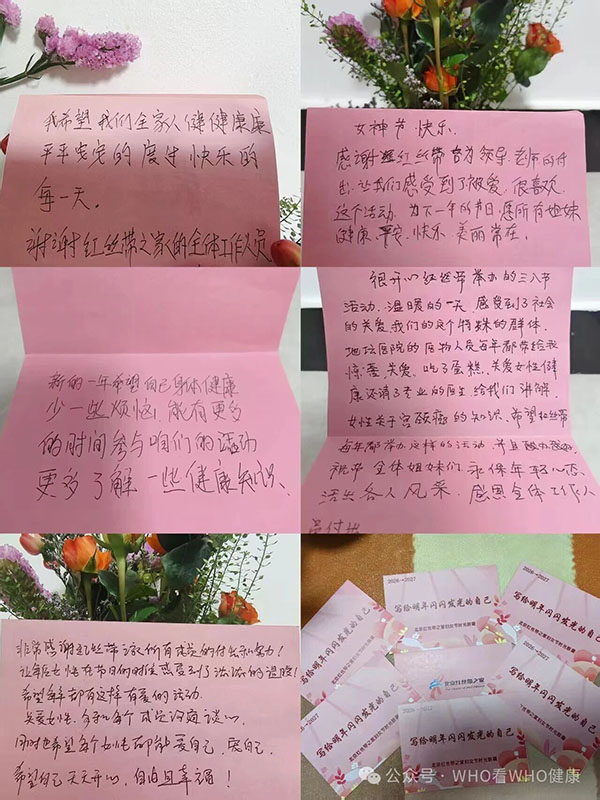 我希望我们全家人健健康康
平平安安的度过快乐的
每一天。
谢谢红丝带之家的全体工作人员
女神节快乐、
感谢红丝带各为领导、老师的付
出,让我们感受到了被爱、很喜欢
这个活动、为下一年的节日,愿所有姐妹
健康、平安、快乐 美丽常在、
新的一年希望自己身体健康
少一些烦恼,能有更多
的时间参与咱们的活动
更多了解一些健康知识、
很开心红丝带举办的三八节
活动、温暖的一天,感受到了社会
的关爱,我们的这个特殊的群体、
地坛医院的医护人员每年都带给我
惊喜、关爱、吃了蛋糕、关爱女性健
康还请了专业的医生给我们讲解、
女性关于宫颈癌的知识、希望红丝带
每年都举办这样的活动、并且越办越好、
祝所全体姐妹们、永保年轻心态、
活出各人风采、感恩全体工作人
员付出
非常感谢红丝带家的有
的付出和努力!
让每位女性在节日的时候感受到了浓浓的温暖!
希望每年都有这样有爱的活动、
关爱女性、
谈心、
同时也希望各个女性都能爱自己、疼自己、
希望自己天天开心,自由且幸福!
2026-2027
写给明年闪闪发光的自己
北京红丝带之家妇女节时光胶囊
2026-2027
写给明年闪闪发光的自己
北京红丝带之家妇女节时光胶囊
2026-2027
写给明年闪闪发光的自己
北京红丝带之家
写给明年闪闪发光的自己
北京红丝带之家妇女节时光胶囊
写给明年闪闪发光的自己
北京红丝带之家妇女节时光胶囊
公众号·WHO看WHO健康